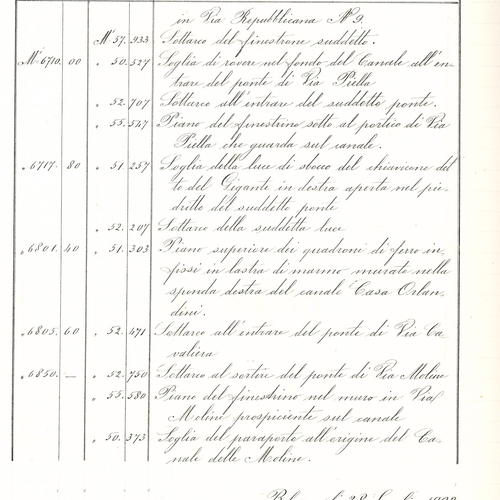 in Via Repubblicana N° 9.
M.i 57. 933 Sottarco del finestrone suddetto.
M.i 6710. 00 " 50. 527 Soglia di rovere nel fondo del Canale all'en-
trare del ponte di Via Piella
" 52. 707 Sottarco all'entrare del suddetto ponte.
" 55. 547 Piano del finestrino sotto al portico di Via
Piella che guarda sul canale.
" 6717. 80 " 51. 257 Soglia della luce di sbocco del chiavicone det
to del Gigante in destra aperta nel pie-
dritto del suddetto ponte
" 52. 207 Sottarco della suddetta luce
" 6801. 40 " 51. 303 Piano superiore dei quadroni di ferro in-
fissi in lastra di marmo murate nella
sponda destra del canale Casa Orlan-
dini.
" 6805. 60 " 52. 471 Sottarco all'entrare del ponte di Via Ca-
valiera
" 6850. — " 52. 750 Sottarco al sortire del ponte di Via Moline
" 55. 580 Piano del finestrino nel muro in Via
Moline prospiciente sul canale
" 50. 373 Soglia del paraporto all'origine del Ca-
nale delle Moline.